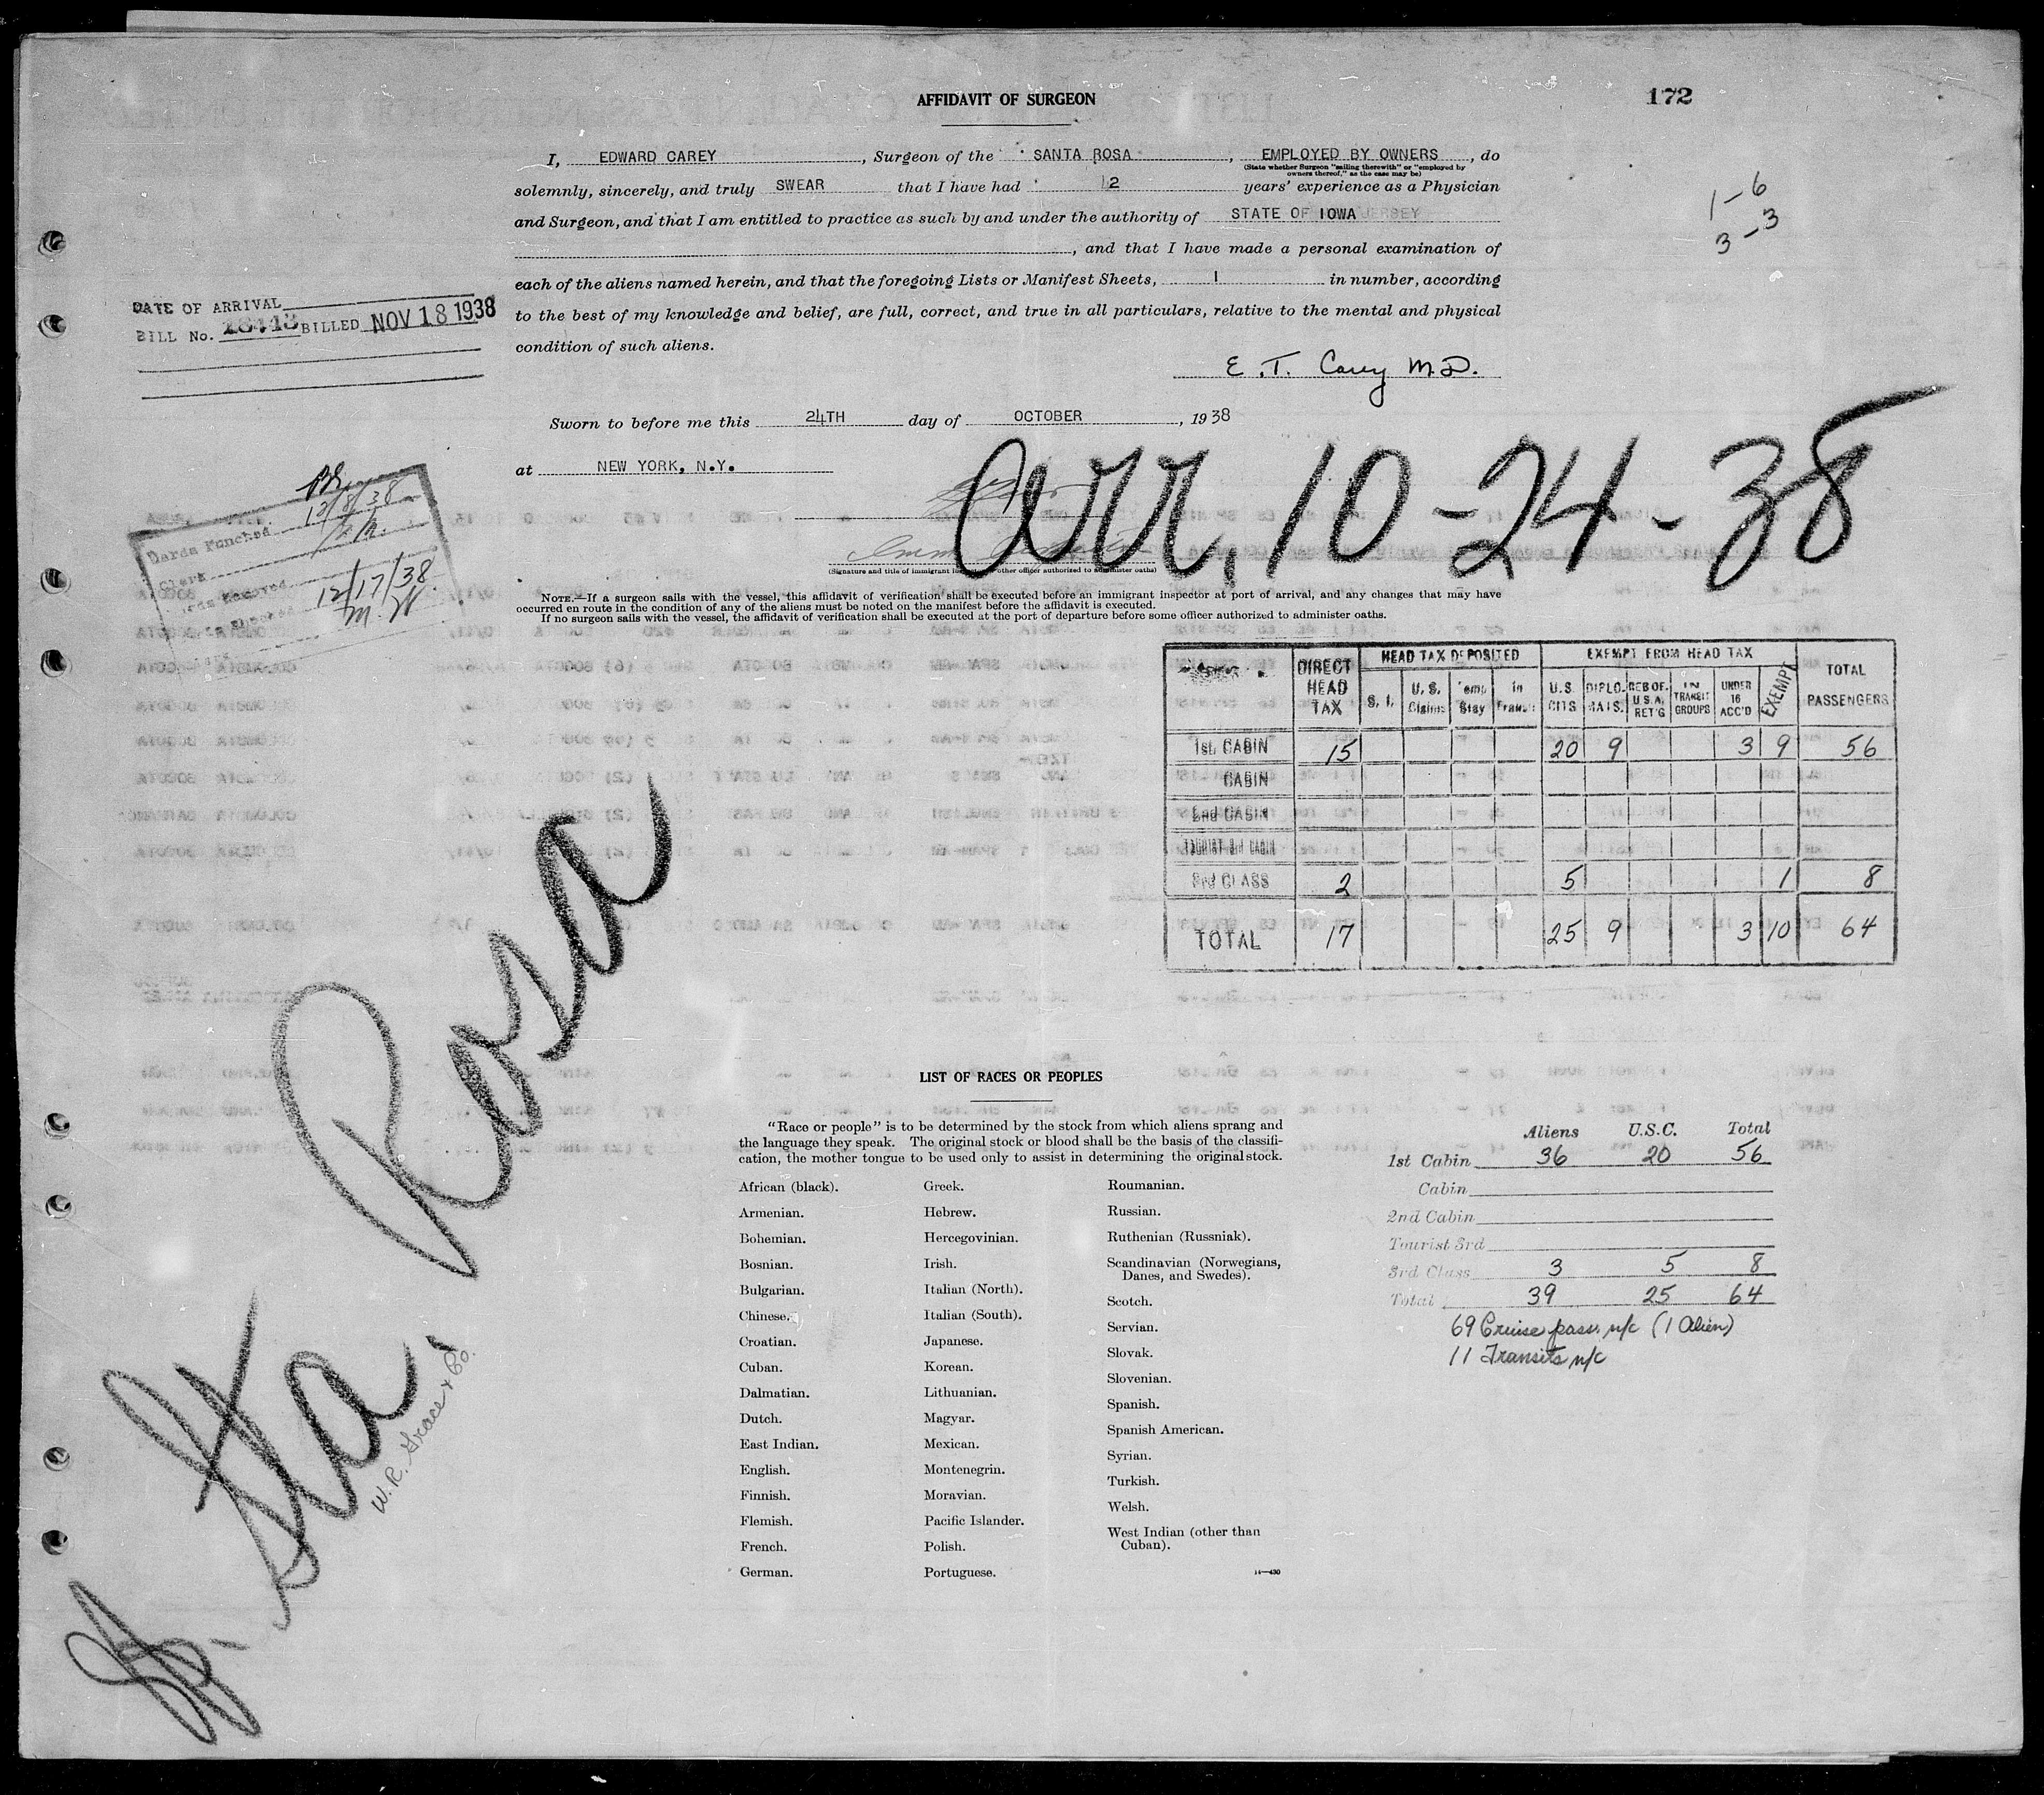 AFFIDAVIT OF SURGEON
172
I, EDWARD CAREY, Surgeon of the "SANTA ROSA", EMPLOYED BY OWNERS, do
(State whether Surgeon "sailing therewith" or "employed by
owners thereof," as the case may be)
solemnly, sincerely, and truly SWEAR that I have had 12 years' experience as a Physician
and Surgeon, and that I am entitled to practice as such by and under the authority of STATE OF IOWA
, and that I have made a personal examination of
each of the aliens named herein, and that the foregoing Lists or Manifest Sheets, 1 in number, according
to the best of my knowledge and belief, are full, correct, and true in all particulars, relative to the mental and physical
condition of such aliens.
1-6
3-3
DATE OF ARRIVAL
BILL No. BILLED NOV 18 1938
E. T. Carey M.D.
Sworn to before me this 24TH day of OCTOBER, 1938
at NEW YORK, N.Y.
Arr. 10-24-38
Cards Punched 12/8/38
Clerk
12/17/38
(Signature and title of immigrant other officer authorized to administer oaths)
NOTE.—If a surgeon sails with the vessel, this affidavit of verification shall be executed before an immigrant inspector at port of arrival, and any changes that may have
occurred en route in the condition of any of the aliens must be noted on the manifest before the affidavit is executed.
If no surgeon sails with the vessel, the affidavit of verification shall be executed at the port of departure before some officer authorized to administer oaths.
DIRECT HEAD TAX HEAD TAX DEPOSITED EXEMPT FROM HEAD TAX TOTAL PASSENGERS
S. I. U.S. Claims Temp Stay In Transit U.S. CITS DIPLOMATS. RES OF U.S.A. RET'G IN TRANSIT GROUPS UNDER 16 ACC'D EXEMPT
1st CABIN 15 20 9 3 9 56
CABIN
2nd CABIN
TOURIST 3rd CABIN
3rd CLASS 2 5 1 8
TOTAL 17 25 9 3 10 64
S.S. Sta. Rosa
W. R. Grace & Co.
LIST OF RACES OR PEOPLES
"Race or people" is to be determined by the stock from which aliens sprang and
the language they speak. The original stock or blood shall be the basis of the classifi-
cation, the mother tongue to be used only to assist in determining the original stock.
African (black).
Armenian.
Bohemian.
Bosnian.
Bulgarian.
Chinese.
Croatian.
Cuban.
Dalmatian.
Dutch.
East Indian.
English.
Finnish.
Flemish.
French.
German.
Greek.
Hebrew.
Hercegovinian.
Irish.
Italian (North).
Italian (South).
Japanese.
Korean.
Lithuanian.
Magyar.
Mexican.
Montenegrin.
Moravian.
Pacific Islander.
Polish.
Portuguese.
Roumanian.
Russian.
Ruthenian (Russniak).
Scandinavian (Norwegians,
Danes, and Swedes).
Scotch.
Servian.
Slovak.
Slovenian.
Spanish.
Spanish American.
Syrian.
Turkish.
Welsh.
West Indian (other than
Cuban).
14—430
Aliens U.S.C. Total
1st Cabin 36 20 56
Cabin
2nd Cabin
Tourist 3rd
3rd Class 3 5 8
Total 39 25 64
69 Cruise pass. n/c (1 Alien)
11 Transits n/c